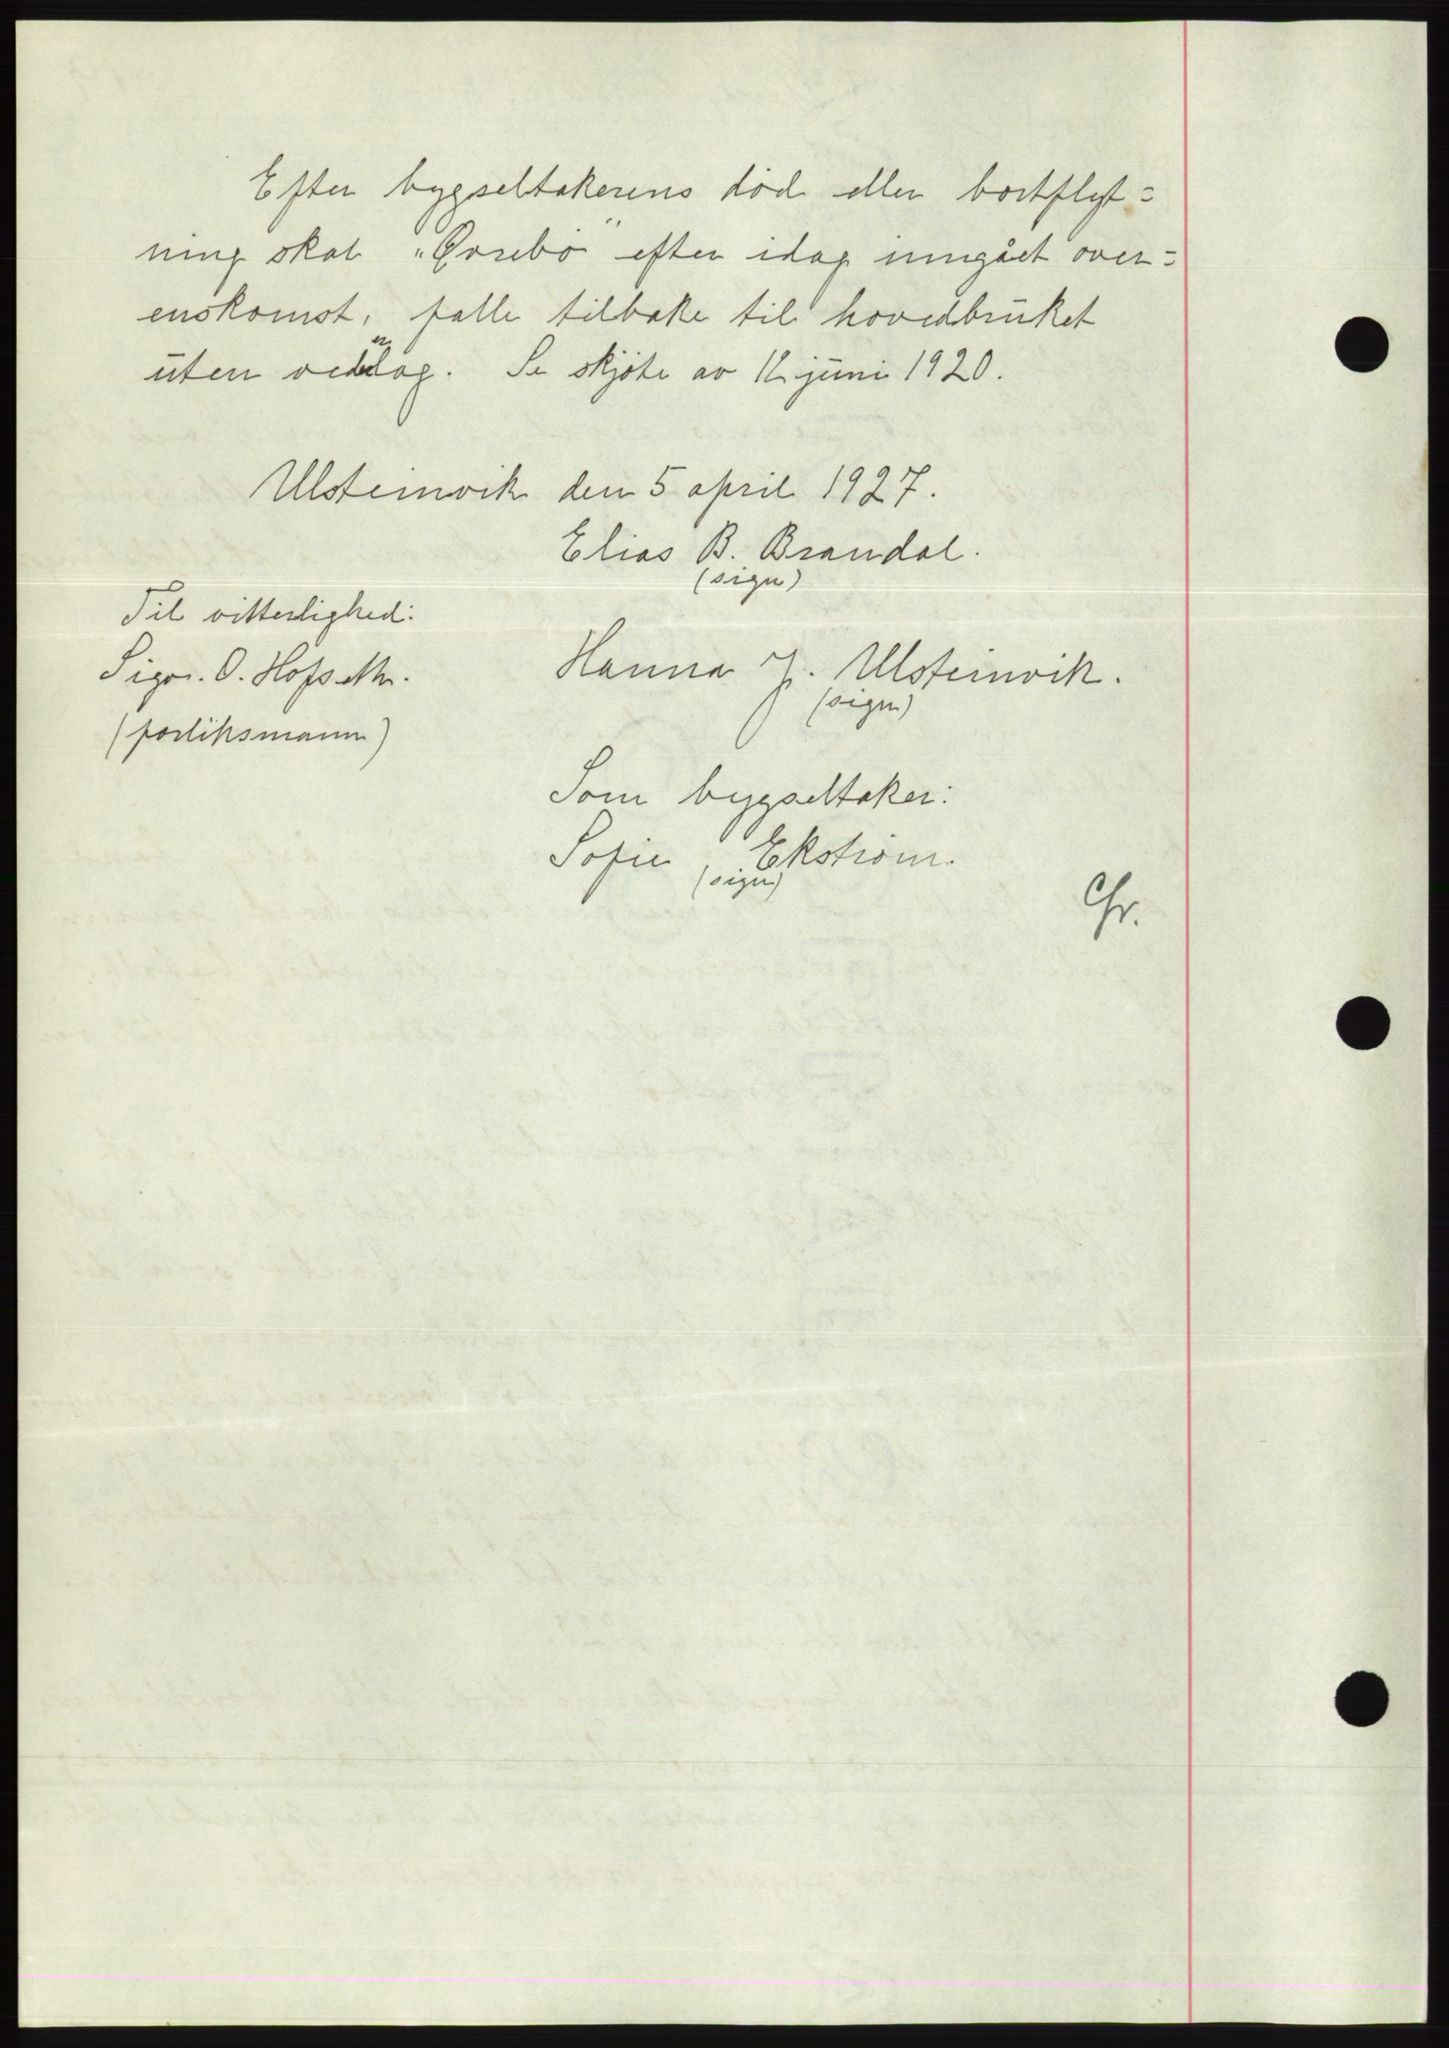 Efter bygseltakerens død eller bortflyt=
ning skal „Ovrebø" efter idag inngået over=
enskomst, falle tilbake til hovedbruket
uten vederlag. Se skjøte av 12 juni 1920.
Ulsteinvik den 5 april 1927.
Elias B. Brandal.
(sign)
Til vitterlighed:
Sigv. O. Hofseth.
(forliksmann)
Hanna J. Ulsteinvik.
(sign)
Som bygseltaker:
Sofie Ekstrøm.
(sign)
Chr.